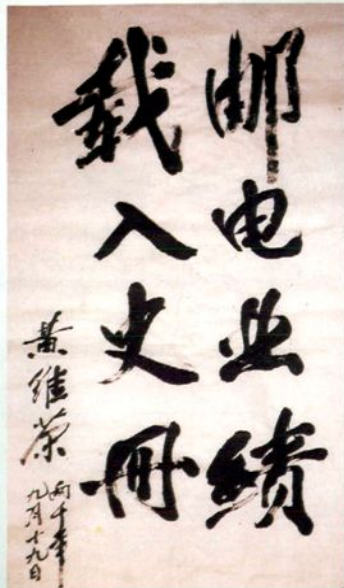 邮电业绩
载入史册
黄维荣
两千年
九月十九日